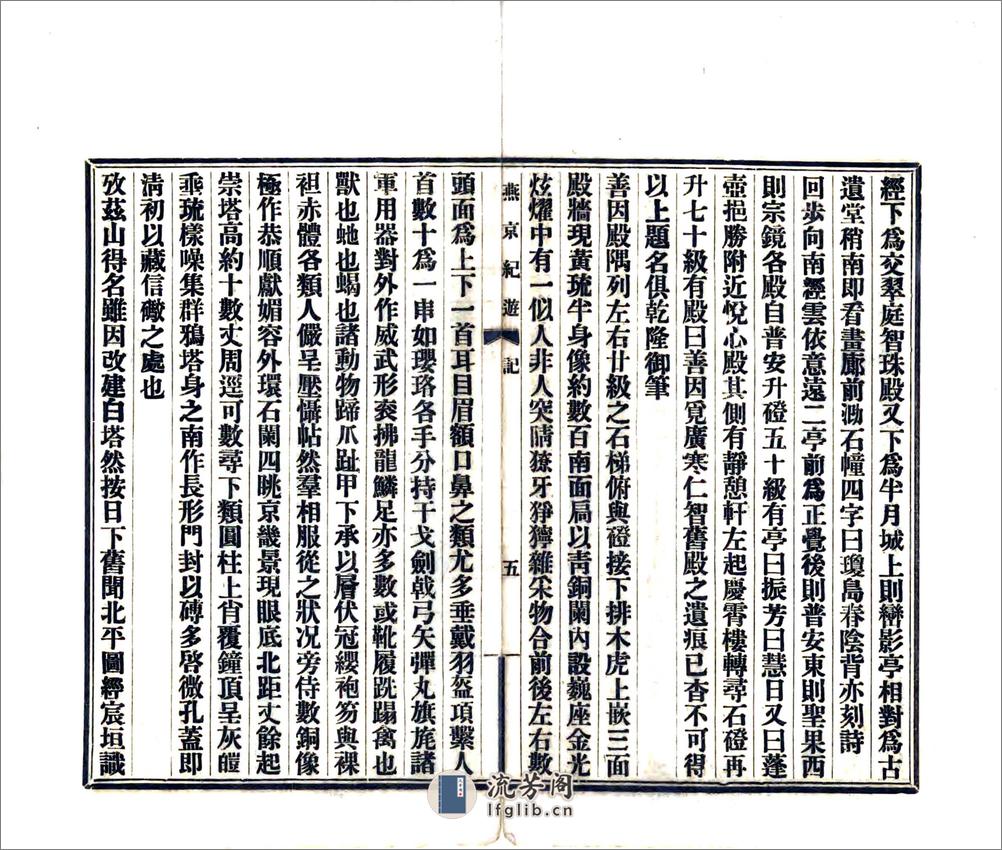 經下爲交翠庭智珠殿又下爲半月城上則巒影亭相對爲古
遺堂稍南即看畫廊前泐石幢四字曰瓊島春陰背亦刻詩
回歩向南經雲依意遠二亭前爲正覺後則普安東則聖果西
則宗鏡各殿自普安升磴五十級有亭曰振芳曰慧日又曰蓬
壺挹勝附近悅心殿其側有靜憩軒左起慶霄樓轉尋石磴再
升七十級有殿曰善因覓廣寒仁智舊殿之遺痕已杳不可得
以上題名俱乾隆御筆
善因殿隅列左右廿級之石梯俯與磴接下排木虎上嵌三面
殿牆現黃琉半身像約數百南面扃以靑銅闌內設巍座金光
炫燿中有一似人非人突睛獠牙猙獰雜采物合前後左右數
燕京紀遊 記 五
頭面爲上下一首耳目眉額口鼻之類尤多垂戴羽盔項繫人
首數十爲一串如瓔珞各手分持干戈劍戟弓矢彈丸旗旄諸
軍用器對外作威武形裘拂龍鱗足亦多數或靴履跣蹋禽也
獸也虵也蝎也諸動物蹄爪趾甲下承以層伏冠纓袍笏與裸
袒赤體各類人儼呈壓懾帖然羣相服從之狀況旁侍數銅像
極作恭順獻媚容外環石闌四眺京畿景現眼底北距丈餘起
崇塔高約十數丈周逕可數尋下類圓柱上肖覆鐘頂呈灰皚
乖琉樣噪集群鴉塔身之南作長形門封以磚多啓微孔蓋即
淸初以藏信礮之處也
攷茲山得名雖因改建白塔然按日下舊聞北平圖經宸垣識
流芳阁
lfglib.cn